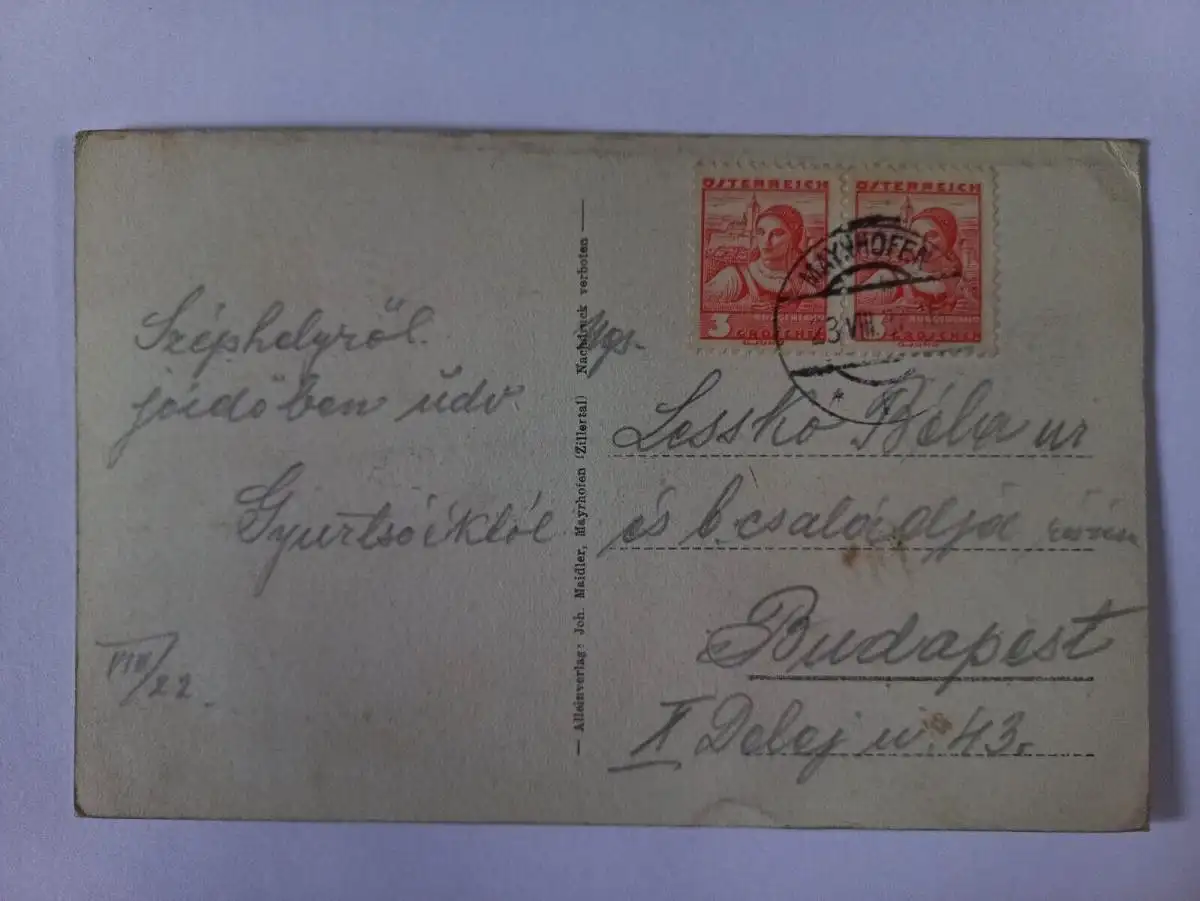 Széphelyről
jóidőben üdv
Gyurtsáiktól
VIII/22.
— Alleinverlag: Joh. Maidler, Mayrhofen (Zillertal) Nachdruck verboten —
ÖSTERREICH
3
BURGENLAND
GROSCHEN
ÖSTERREICH
BURGENLAND
GROSCHEN
MAYRHOFEN
23.VIII.
Ngs.
Lessko Béla ur
és b. családja
Budapest
II 43.